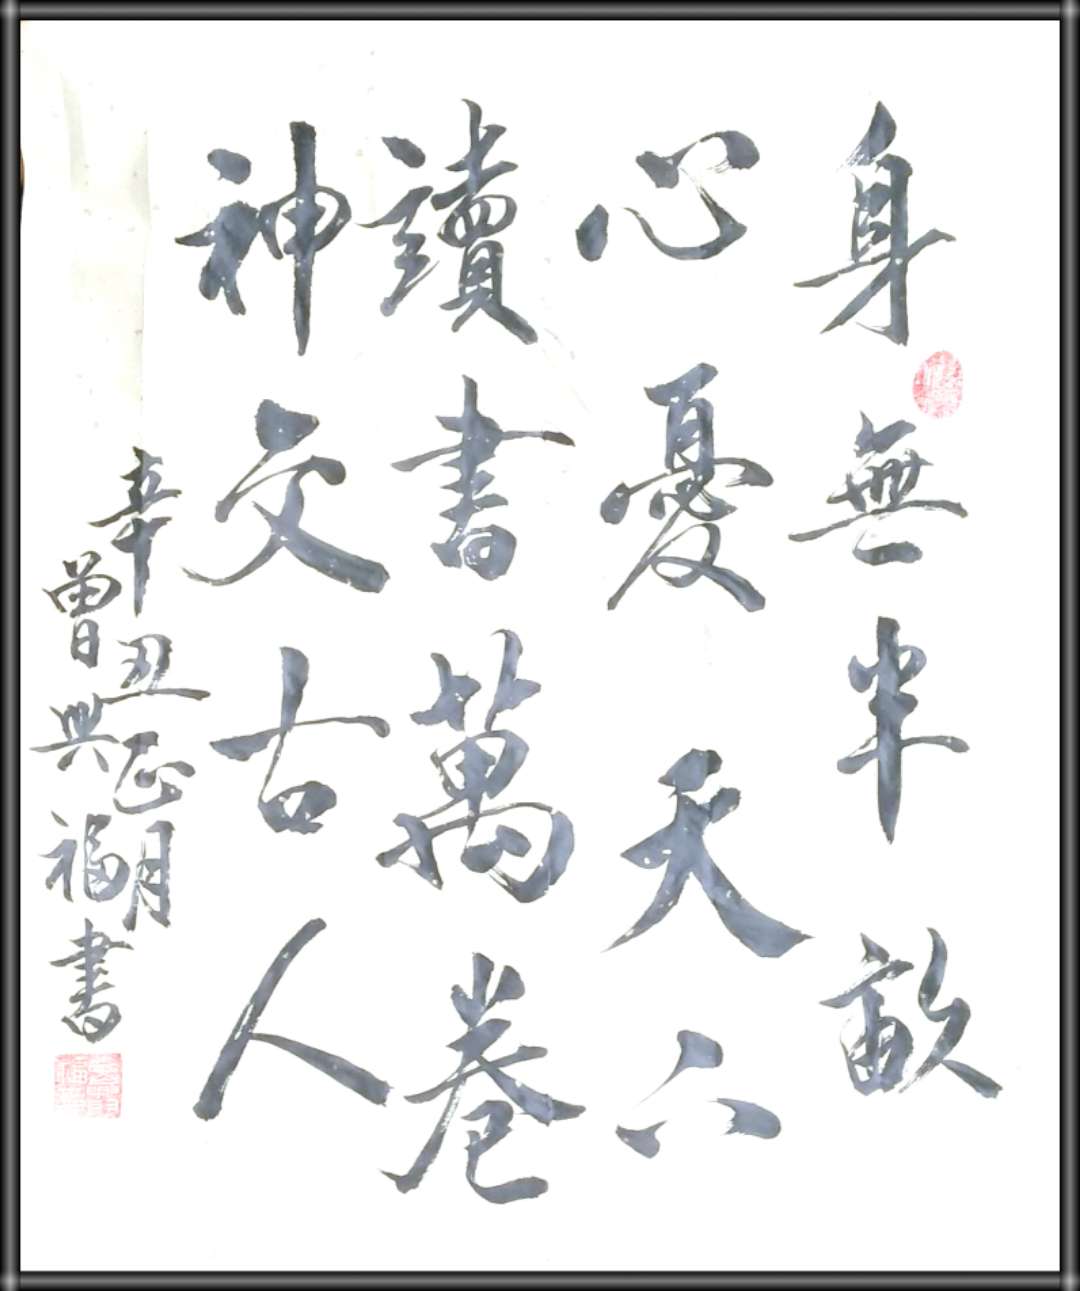 身無半畝
心憂天下
讀書萬卷
神交古人
辛丑正月
曾興福書